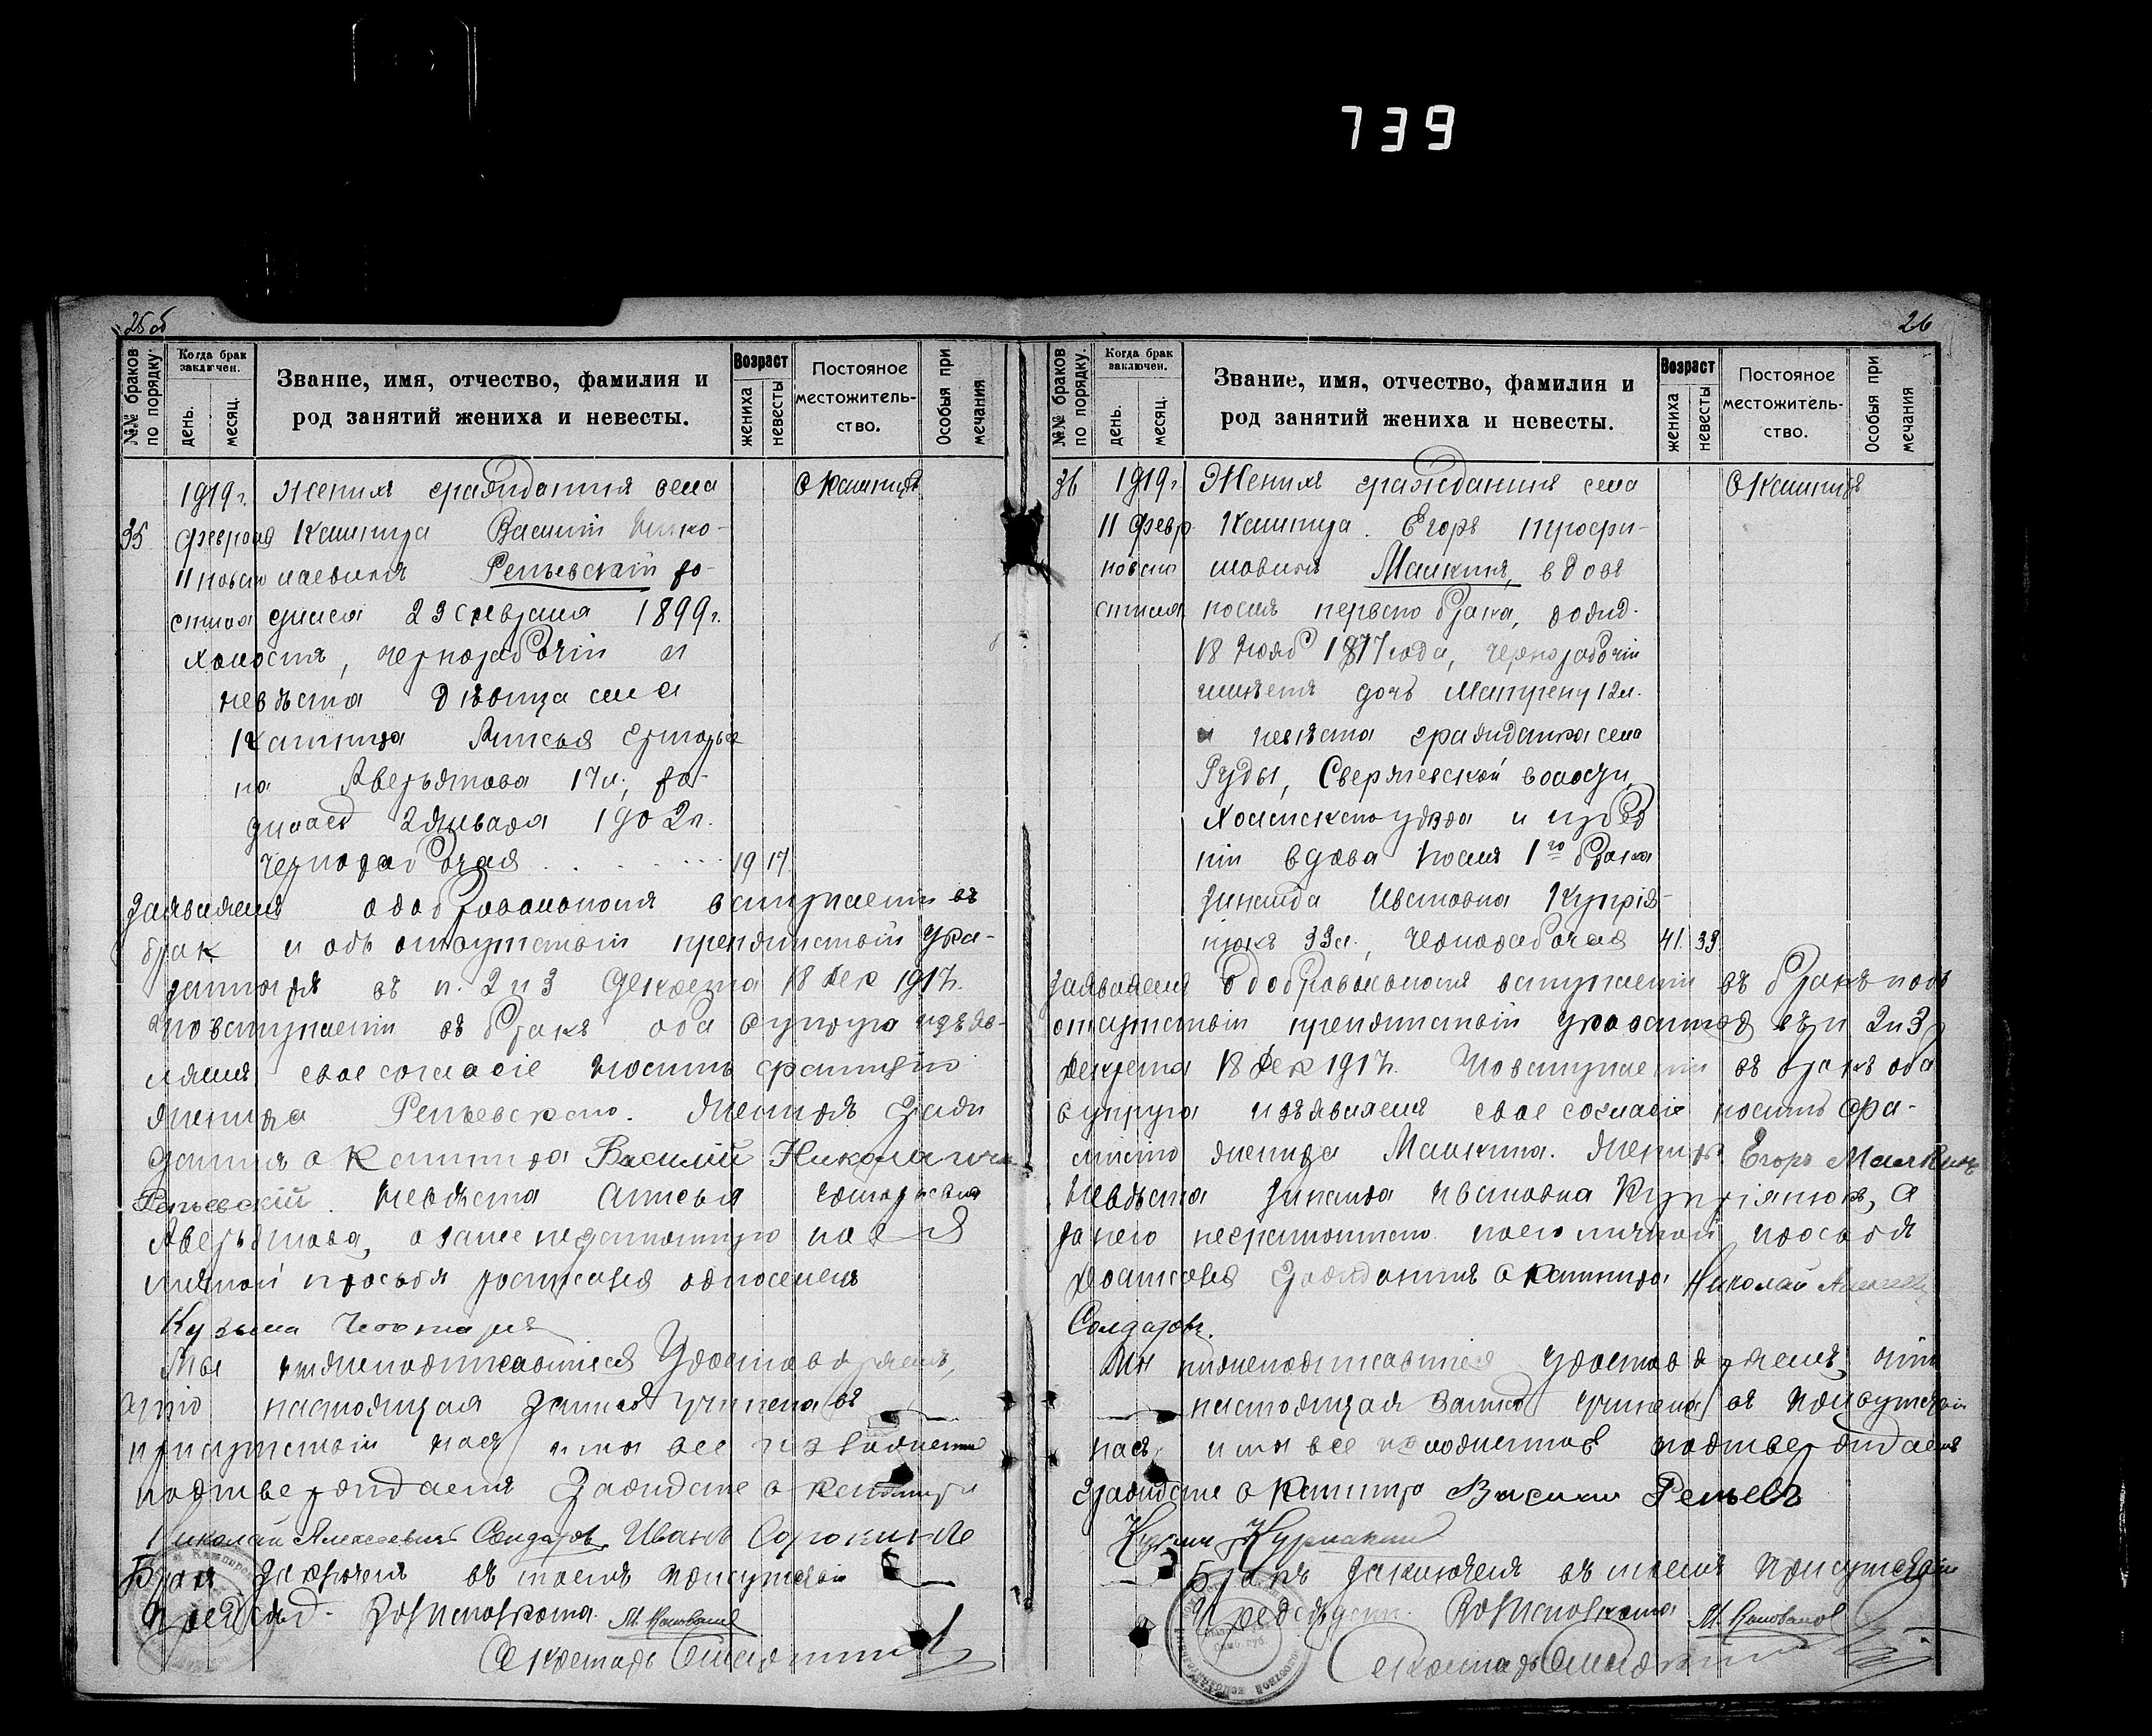 739
25 об
№№ браков по порядку.
Когда брак заключен.
день.
месяц.
Звание, имя, отчество, фамилия и род занятий жениха и невесты.
Возраст
жениха
невесты
Постояное местожитель-ство.
Особыя при мечания
35
1919 г. Женихъ гражданинъ села
С Кашпиръ
февраля Кашпира Василий Нико-
11 новаго лаевичъ Репьевский ро-
стиля дился 23 февраля 1899 г.
холостъ, чернорабочій и
невѣста дѣвица села
Кашпира Анисья
на Аверьянова 17 л., ро-
дилась 2 января 1902 г.
чернорабочая 19 17
Заявляемъ о добровольномъ вступленіи въ
брак и объ отсутствіи препятствій ука-
занныхъ въ п. 2 и 3 декрета 18 дек 1917 г.
По вступленіи въ бракъ оба супруга изъяв-
ляемъ свое согласіе носить фамилію
жениха Репьевскаго. Женихъ граж
данинъ с Кашпира Василий Николаевич
Репьевский. Невѣста Анисья
Аверьянова, а за нее неграмотную по ея
личной просьбѣ росписался односелецъ
Кузьма
Мы нижеподписавшиеся удостовѣряемъ,
что настоящая запись учинена въ
присутствіи насъ и мы все изложенное
подтверждаемъ Граждане с Кашпира
Николай Алексеевич Солдатовъ Иванъ Сорокинъ
Брак заключенъ въ моемъ присутствіи
Председ. Волисполкома. М.
Секретарь
26
№№ браков по порядку.
Когда брак заключен.
день.
месяц.
Звание, имя, отчество, фамилия и род занятий жениха и невесты.
Возраст
жениха
невесты
Постояное местожитель-ство.
Особыя при мечания
36 1919 г Женихъ гражданинъ села
С Кашпиръ
11 февр Кашпира. Егоръ Трофи-
новаго мовичъ Малкинъ, вдовъ
стиля послѣ перваго брака, родил.
18 1877 года, чернорабочій
имѣетъ дочь Матрену 12 л.
и невѣста гражданка села
Руды, Свержевской волости,
Холмскаго уѣзда и губер
ніи вдова послѣ 1го брака
Зинаида Ивановна Купрія-
нюкъ 33 л., чернорабочая 41. 33.
Заявляемъ о добровольномъ вступленіи въ бракъ и объ
отсутствіи препятствій указанных въ п 2 и 3
декрета 18 дек 1917 г. По вступленіи въ бракъ оба
супруга изъявляемъ свое согласіе носить фа-
милію жениха Малкина. Женихъ Егоръ Малкинъ
Невѣста Зинаида Ивановна Купріянюкъ, а
за нею неграмотною по ею личной просьбѣ
росписался гражданинъ с Кашпира Николай Алексеев
Солдатовъ.
Мы нижеподписавшиеся удостовѣряемъ, что
настоящая запись учинена въ присутствіи
насъ и мы все изложенное подтверждаемъ
Граждане с Кашпира Василий Репьевъ
Бракъ заключенъ въ моемъ присутствіи
Председат. Волисполкома М.
Секретарь